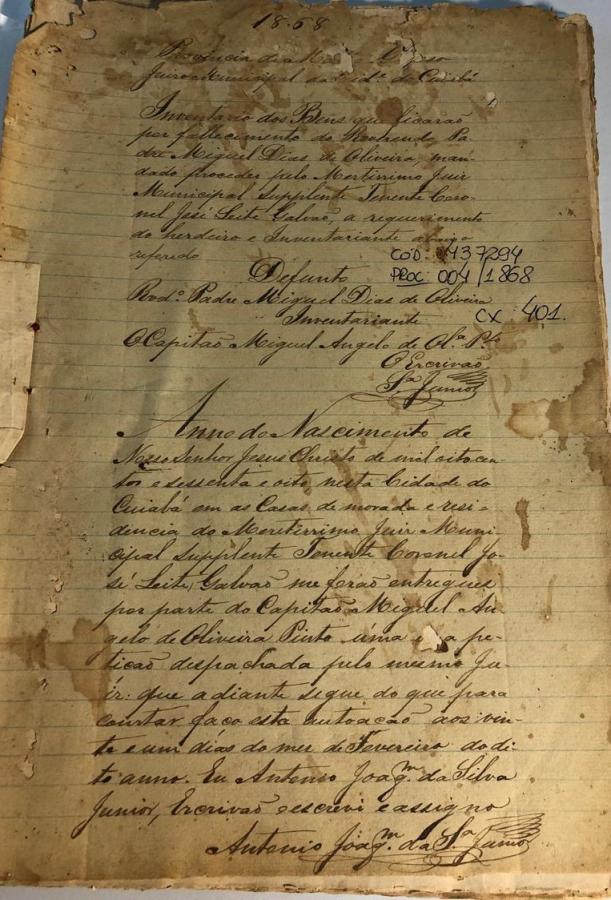 1868
Provincia de Matto Grosso
Juizo Municipal da Cidᵉ de Cuiabá
Inventario dos Bens que ficarão
por fallecimento do Reverendo Pa-
dre Miguel Dias de Oliveira, man-
dado proceder pelo Meritissimo Juiz
Municipal Supplente Tenente Coro-
nel José Leite Galvão, a requerimento
do herdeiro e Inventariante abaixo
referido
COD: 437294
PROC: 004/1868
Defunto
Revdº Padre Miguel Dias de Oliveira
CX 401.
Inventariante
O Capitão Miguel Angelo de Olª Pᵗᵒ
O Escrivão
Sª Junior
Anno do Nascimento de
Nosso Senhor Jesus Christo de mil oito cen-
tos e sessenta e oito nesta Cidade do
Cuiabá em as Casas de morada e resi-
dencia do Meritissimo Juiz Muni-
cipal Supplente Tenente Coronel Jo-
sé Leite Galvão me forão entregues
por parte do Capitão Miguel An-
gelo de Oliveira Pinto uma a pe-
tição despachada pelo mesmo Ju-
iz: que adiante segue do que para
constar faço esta autoação aos vin-
te e um dias do mez de Fevereiro do di-
to anno. Eu Antonio Joaqᵐ da Silva
Junior, Escrivão o escrevi e assigno
Antonio Joaqᵐ da Sª Junior